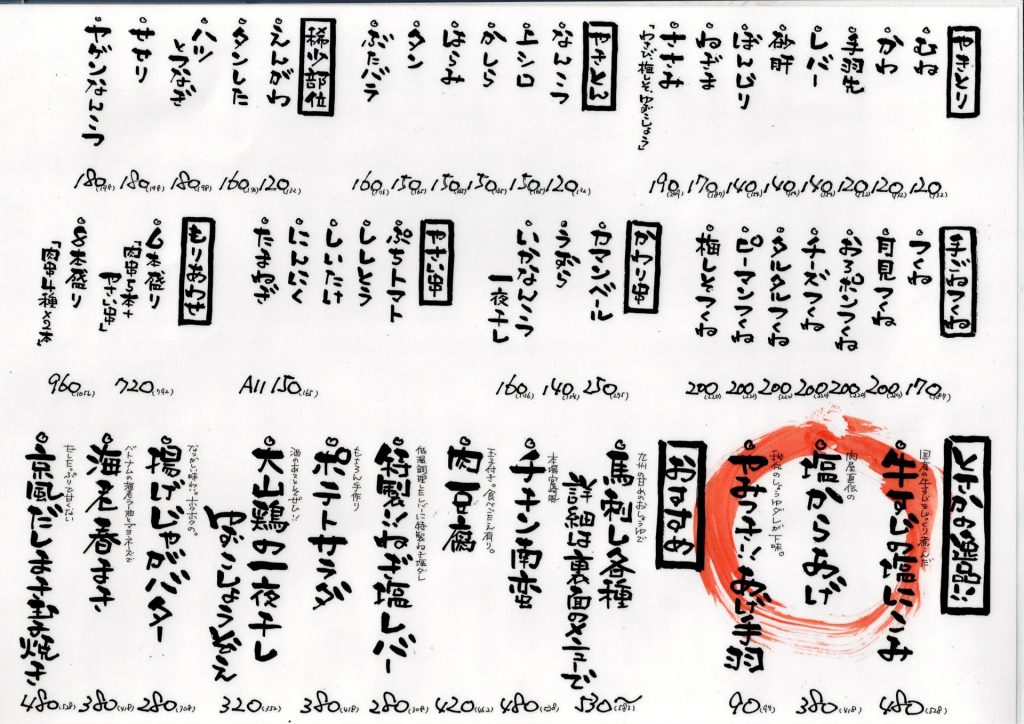 やきとり
むね 120(132)
かわ 120(132)
手羽先 120(132)
レバー 140(154)
砂肝 140(154)
ぼんじり 140(154)
ねぎま 170(187)
ささみ 190(209)
「わさび、梅しそ、ゆずこしょう」
やきとん
なんこつ 120(132)
シロ 150(165)
かしら 150(165)
はらみ 150(165)
タン 150(165)
ぶたバラ 160(176)
稀少部位
えんがわ 120(132)
タンした 160(176)
ハツ
とつなぎ 180(198)
せせり 180(198)
やげんなんこつ 180(198)
手ごねつくね
つくね 170(187)
月見つくね 200(220)
おろポンつくね 200(220)
チーズつくね 200(220)
タルタルつくね 200(220)
ピーマンつくね 200(220)
梅しそつくね 200(220)
かわり串
カマンベール 250(275)
うずら 140(154)
いかなんこつ
一夜干し 160(176)
やさい串
ぷちトマト
ししとう
しいたけ
にんにく
たまねぎ
All 150(165)
もりあわせ
6本盛り 720(792)
「肉串5本+
やさい串」
8本盛り 960(1056)
「肉串4種×2本」
とさかの名品!!
国産の牛すじをじっくり煮こんだ
牛すじの塩にこみ 480(528)
肉屋直伝の
塩からあげ 380(418)
秘伝のしょうゆダレが下味。
やみつき!!あげ手羽 90(99)
おすすめ
九州の甘めのおしょうゆで
馬刺し各種
詳細は裏面のメニューで 530〜(583)
本場宮崎風
チキン南蛮 480(528)
玉子付き。食べごたえ有り。
肉豆腐 420(462)
低温調理したレバーに特製ねぎ塩ダレ
特製!!ねぎ塩レバー 280(308)
もちろん手作り
ポテトサラダ 380(418)
酒のあてにどうぞ!!
大山鶏の一夜干し
ゆずこしょうぞえ 320(352)
なつかしい味わい。ホクホクの。
揚げじゃがバター 280(308)
海老春まき 380(418)
京風だしまき玉子焼き 480(528)